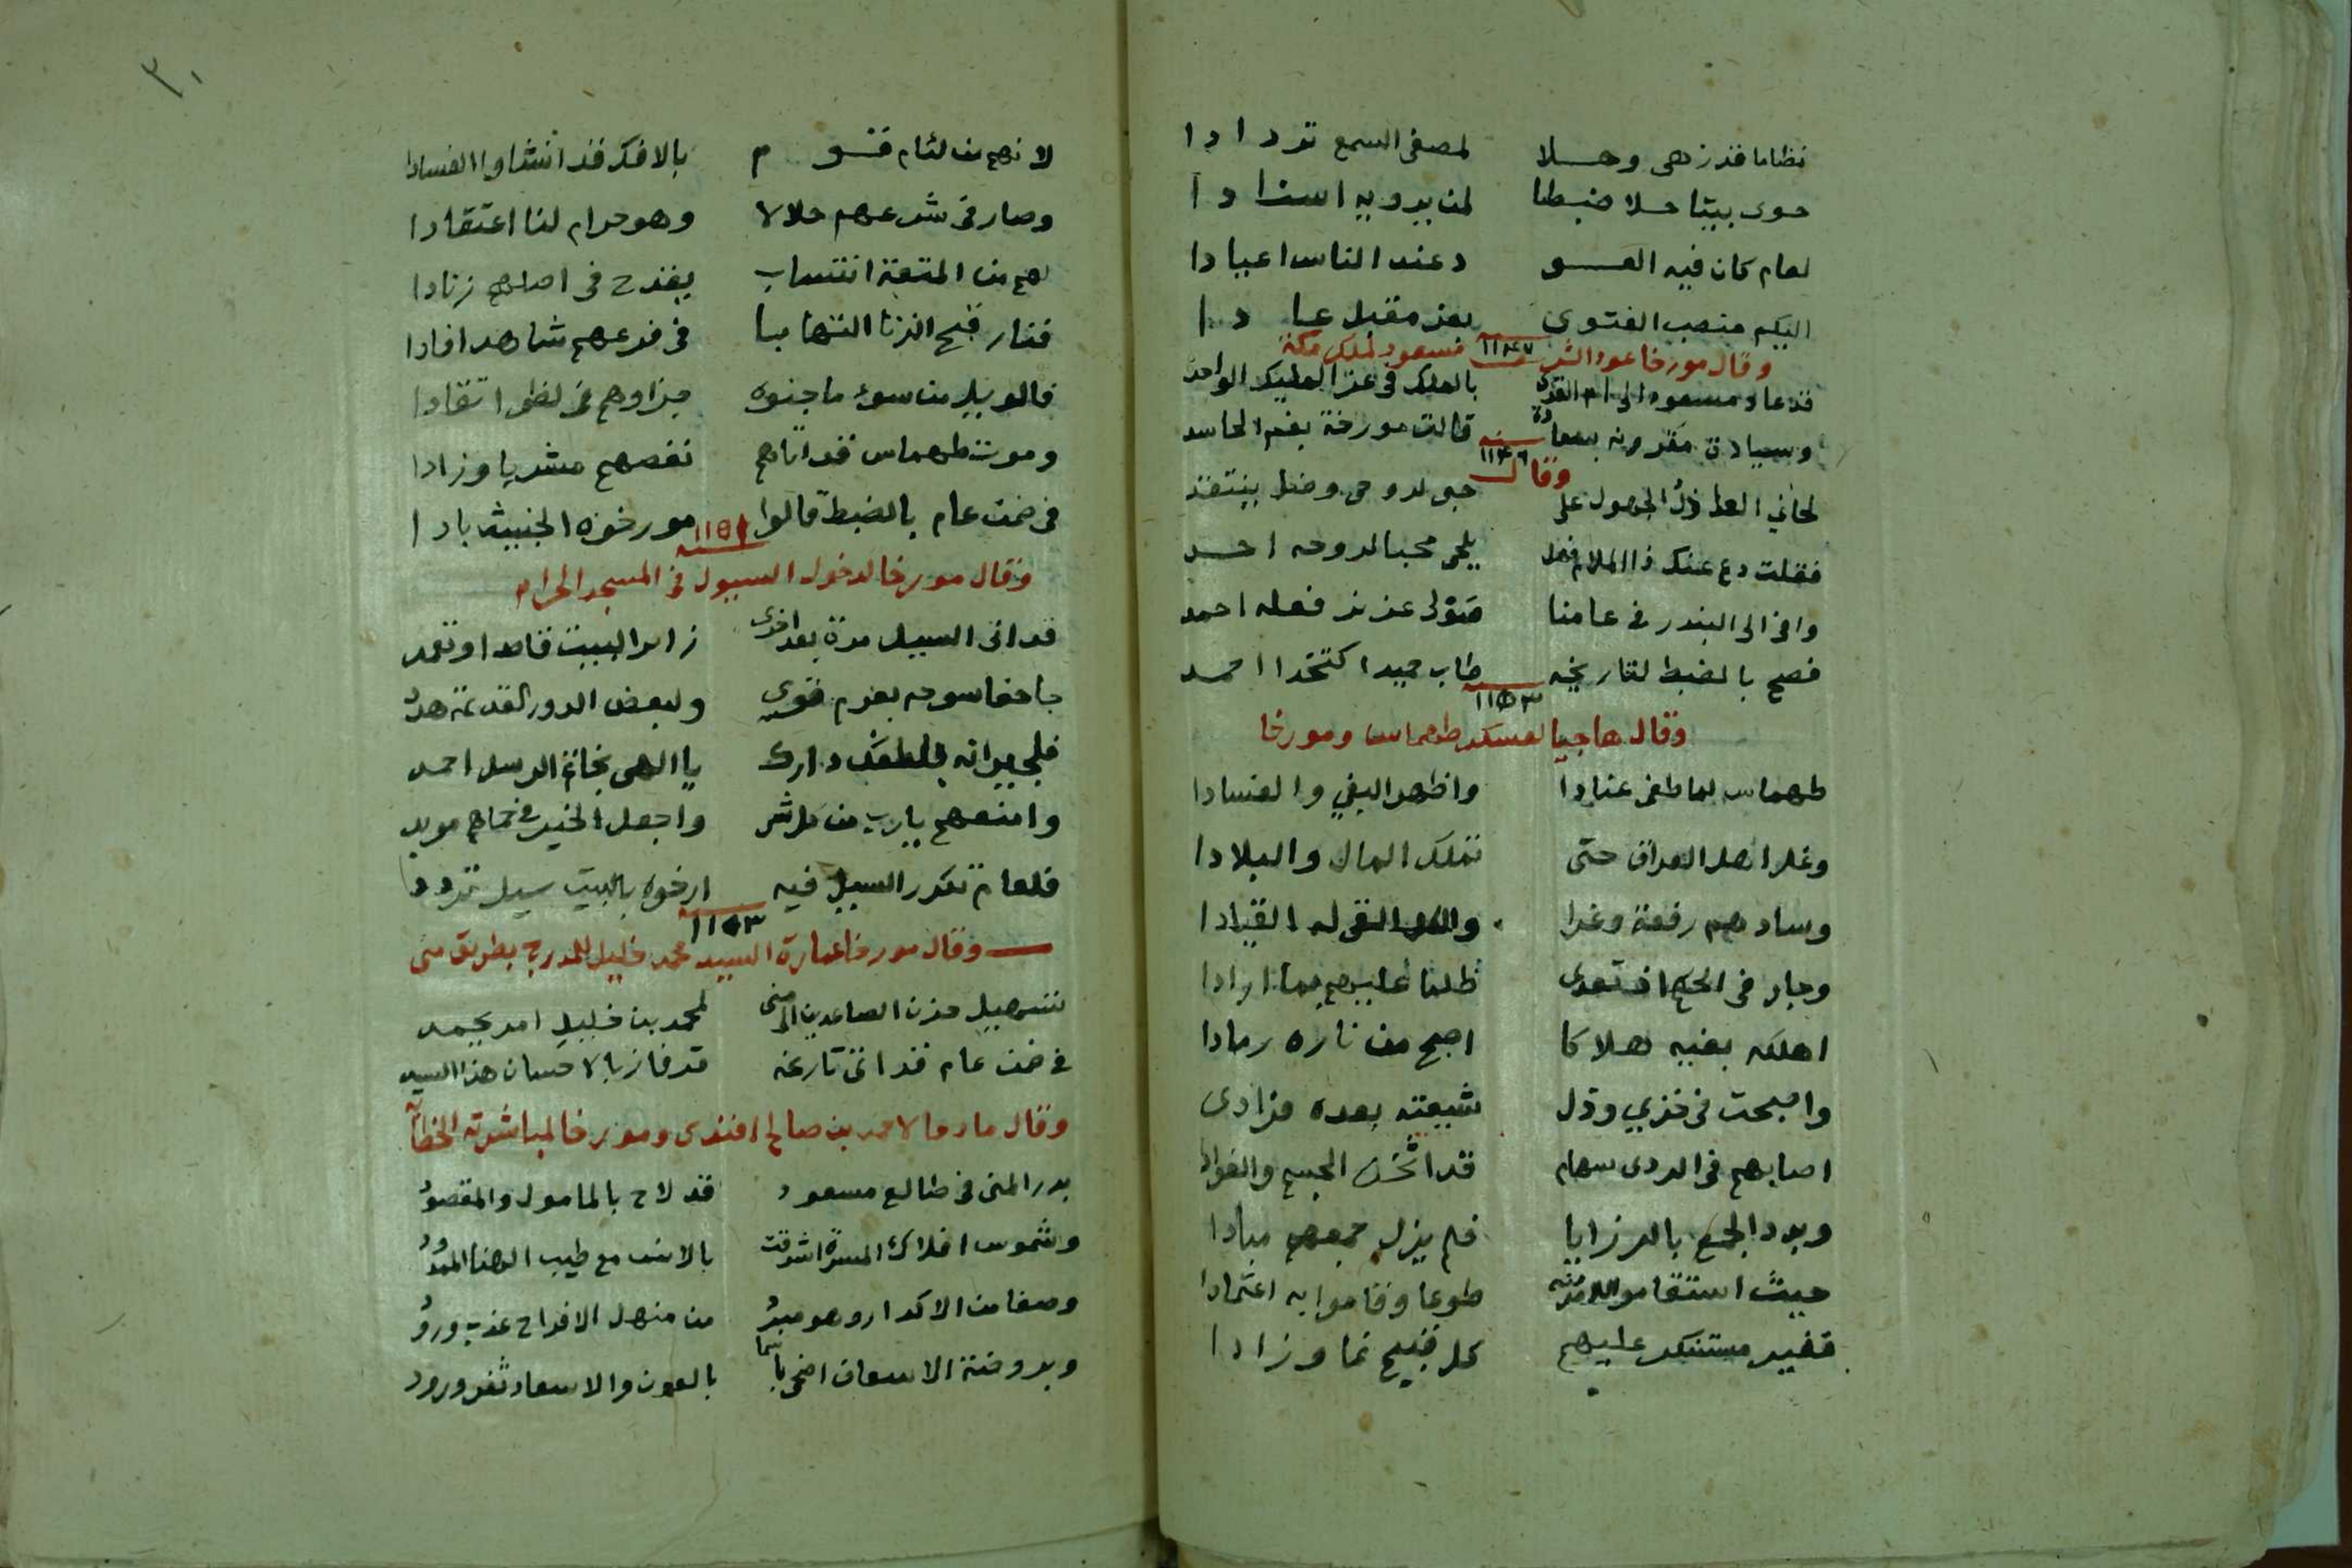 نظاما قد زهى وحلا لمصغى السمع تردادا
حوى بيتا حلا ضبطا لمن يرويه اسنادا
لعام كان فيه العو د عند الناس اعيادا
اليكم منصب الفتوى بعز مقبل عادا
وقال مورخا عود الشريف مسعود لملك مكة ١١٤٧
قد عاد مسعود الى ام القرى بالملك فى عز المليك الواحد
وسيادة مقرونه بسعادة قالت مورخة بغم الحاسد
وقال سنه ١١٤٦
لحاني العاذل الجهول على حبى لروحى وضل ينتقد
فقلت دع عنك ذا الملام فهل يلحى محبا لروحه احد
وافى الى البندر فى عامنا متولى عزيز فعله احمد
فصح بالضبط لتاريخه طاب حميدا كتخدا احمد
١١٥٣
وقال هاجيا لعسكر طهماس ومورخا
طهماس لما طغى عنادا واظهر البغي والفسادا
وغر اهل العراق حتى تملك المال والبلادا
وسادهم رفعة وغدا والكل القى له القيادا
وجار فى الحكم اذ تعدى ظلما عليهم بما ارادا
اهلكه بغيه هلاكا اصبح من ناره رمادا
واصبحت فى خزي وذل شيعته بعده فرادى
اصابهم فى الردى سهام قد اثخن الجسم والفوادا
وبدد الجمع بالرزايا فلم يزل جمعهم مبادا
حيث استقاموا لاذيته طوعا وقاموا به اعتمادا
فغير مستنكر عليهم كل قبيح نما وزادا
٣٠
لانهم من لئام قوم بالافك قد انشاوا الفسادا
وصار فى شرعهم حلالا وهو حرام لنا اعتقادا
لهم من المتعة انتساب يقدح فى اصلهم زنادا
فنار قبح الزنا التهابا فى فرعهم شاهد افادا
فالويل من سوء ما جنوه جزاوهم فى لظى اتقادا
وموت طهماس قد اتاهم نغصهم مشربا وزادا
فى ضمن عام بالضبط قالوا مورخوه الخبيث بادا
وقال مورخا لدخول السيول فى المسجد الحرام سنه ١١٥٩
قد اتى السيل مرة بعد اخرى زاىرا البيت قاصدا وتعمد
جاحفا سوحه بعزم قوى ولبعض الدور القديمة هد
فلجيرانه بلطفك دارك يا الهى بخاتم الرسل احمد
وامنعهم يارب من كل شر واجعل الخير فى حماهم موبد
فلعام تكرر السيل فيه ارخوه بالبيت سيل تردد
١١٥٣
وقال مورخا عمارة السيد محمد خليل للمدرج بطريق منى
تسهيل حزن الصاعدين الى منى لمحمد بن خليل امر يحمد
فى ضمن عام قد اتى تاريخه قد فاز بالاحسان هذا السيد
وقال مادحا لاحمد بن صالح افندى ومورخا لمباشرته الخطابة
بدر المنى فى طالع مسعود قد لاح بالمامول والمقصود
وشموس افلاك المسرة اشرقت بالانس مع طيب الهنا الممدود
وصفا من الاكدار وهو مبرد من منهل الافراح عذب ورود
وبروضة الاسعاف اضحى باسما بالعون والاسعاد ثغر ورود